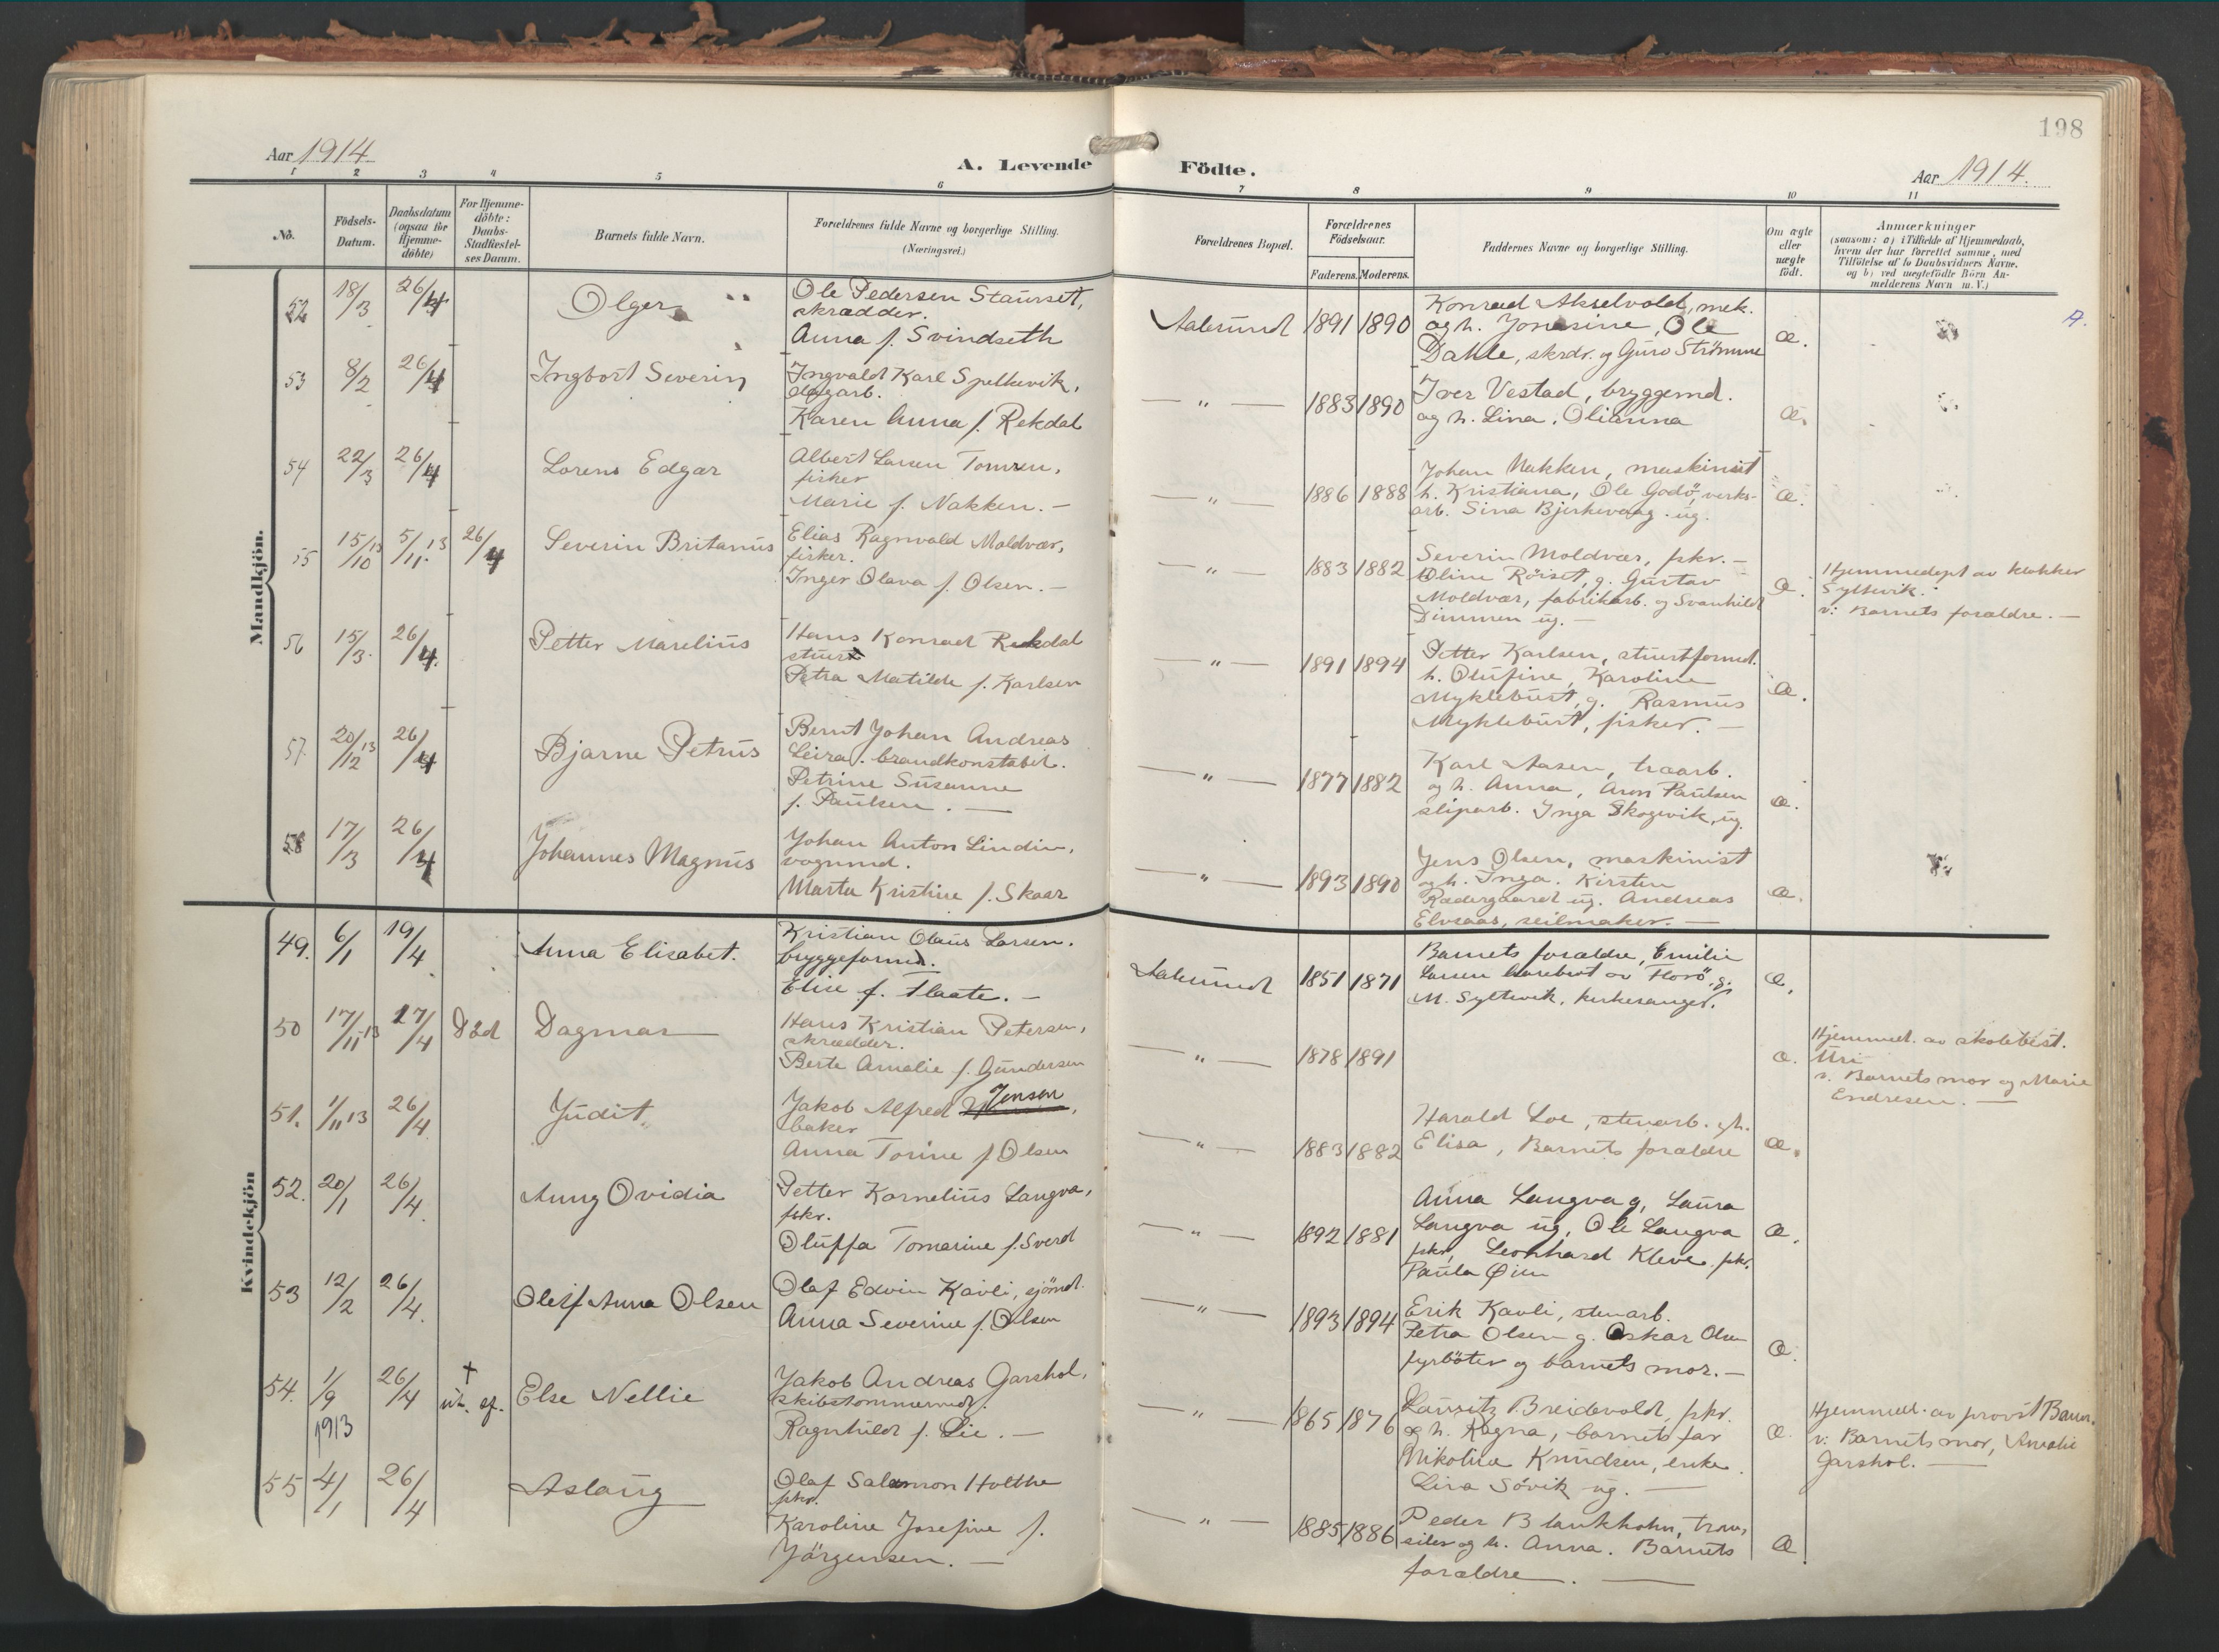 198
Aar 1914.
A. Levende Födte.
Aar 1914.
1 2 3 4 5 6 7 8 9 10 11
No.
Födsels-
Datum.
Daabsdatum
(ogsaa for
Hjemme-
döbte)
For Hjemme-
döbte:
Daabs-
Stadfæstel-
ses Datum.
Barnets fulde Navn.
Forældrenes fulde Navne og borgerlige Stilling.
(Næringsvei.)
Forældrenes Bopæl.
Forældrenes
Födselsaar.
Faderens. Moderens.
Faddernes Navne og borgerlige Stilling.
Om ægte
eller
uægte
födt.
Anmærkninger
(saasom: a) i Tilfælde af Hjemmedaab,
hvem der har forrettet samme, med
Tilföielse af to Daabsvidners Navne,
og b) ved uægtefödte Börn An-
melderens Navn m. V.)
Mandkjön.
52 18/3 26/4 Olger
Ole Pedersen Staurset,
skrædder.
Anna f. Svindseth
Aalesund 1891 1890
Konrad Akselvold, mek.
og h. Jonesine, Ole
Dahle, skrdr. og Guro Strömme
æ.
53 8/2 26/4 Ingbort Severin
Ingvald Karl Spelkevik,
dagarb.
Karen Anna f. Rekdal
— " — 1883 1890
Iver Vestad, bryggemd.
og h. Lina, Olianna
æ.
54 22/3 26/4 Lorens Edgar
Albert Larsen Tomren,
fisker
Marie f. Nakken. —
— " — 1886 1888
Johan Nakken, maskinist
h. Kristiana, Ole Godö, verks-
arb. Sina Bjerkevaag. ug.
æ.
55 15/10 13 5/11 13 26/4 Severin Britanus
Elias Ragnvald Moldvær,
fisker.
Inger Olava f. Olsen. —
— " — 1883 1882
Severin Moldvær, fskr. —
Oline Röiset, g. Gustav
Moldvær, fabrikarb. og Svanhild
Dimmen ug. —
æ.
Hjemmedøpt av klokker
Syltevik.
v: Barnets forældre. —
56 15/3 26/4 Petter Marelius
Hans Konrad Rekdal
stuert
Petra Matilde f. Karlsen
— " — 1891 1894
Petter Karlsen, stuertformd.
h. Olufine, Karoline
Myklebust, g. Rasmus
Myklebust, fisker. —
æ.
57. 20/12 13 26/4 Bjarne Petrus
Bernt Johan Andreas
Leira, brandkonstabel.
Petrine Susanne
f. Paulsen. —
— " — 1877 1882
Karl Aasen, træarb.
og h. Anna, Aron Paulsen
sliparb. Inga Skogevik, ug.
æ.
58 17/3 26/4 Johannes Magnus
Johan Anton Lindin,
vognmd.
Marta Kristine f. Skaar
— " — 1893 1890
Jens Olsen, maskinist
og h. Inga. Kirsten
Rødergaard ug. Andreas
Elvsaas, seilmaker. —
æ.
Kvindekjön
49. 6/1 19/4 Anna Elisabet.
Kristian Olaus Larsen.
bryggeformd.
Elise f. Flaate. —
Aalesund 1851 1871
Barnets forældre, Emilie
Larsen av Florö, g.
M. Syltevik, kirkesanger.
æ.
50 17/11 13 17/4 Död Dagmar
Hans Kristian Petersen,
skrædder.
Berte Amalie f. Gundersen
— " — 1878 1891
æ.
Hjemmed. av skolebest.
Uri
v. Barnets mor og Marie
Endresen. —
51. 1/11 13 26/4 Judit
Jakob Alfred Jensen,
baker
Anna Torine f. Olsen
— " — 1883 1882
Harald Loe, stenarb. og h.
Elisa, Barnets forældre
æ.
52. 20/1 26/4 Anny Ovidia
Petter Kornelius Langva,
fskr.
Oluffa Tomarine f. Sverd
— " — 1892 1881
Anna Langva g, Laura
Langva ug, Ole Langva
fskr, Leonhard Kleve fskr.
Paula Øien
æ.
53 12/2 26/4 Oleif Anna Olsen
Olaf Edvin Kavli, sjömd.
Anna Severine f. Olsen
— " — 1893 1894
Erik Kavli, stenarb.
Petra Olsen g. Oskar Olsen
fyrböter og barnets mor. —
æ.
54. 1/9 1913 26/4 † Else Nellie
Jakob Andreas Garshol,
skibstømmermd.
Ragnhild f. Lie. —
— " — 1865 1876
Lauritz Breidevold, fskr.
og h. Ragna, barnets far
Nikolina Knudsen, enke
Lina Sövik ug. —
æ.
Hjemmed. av provst Bauer.
v: Barnets mor, Amalie
Garshol. —
55 4/1 26/4 Aslaug
Olaf Salamon Holthe
fskr.
Karoline Josefine f.
Jörgensen. —
— " — 1885 1886
Peder Blankholm, tran-
seiler og h. Anna. Barnets
forældre. —
æ.